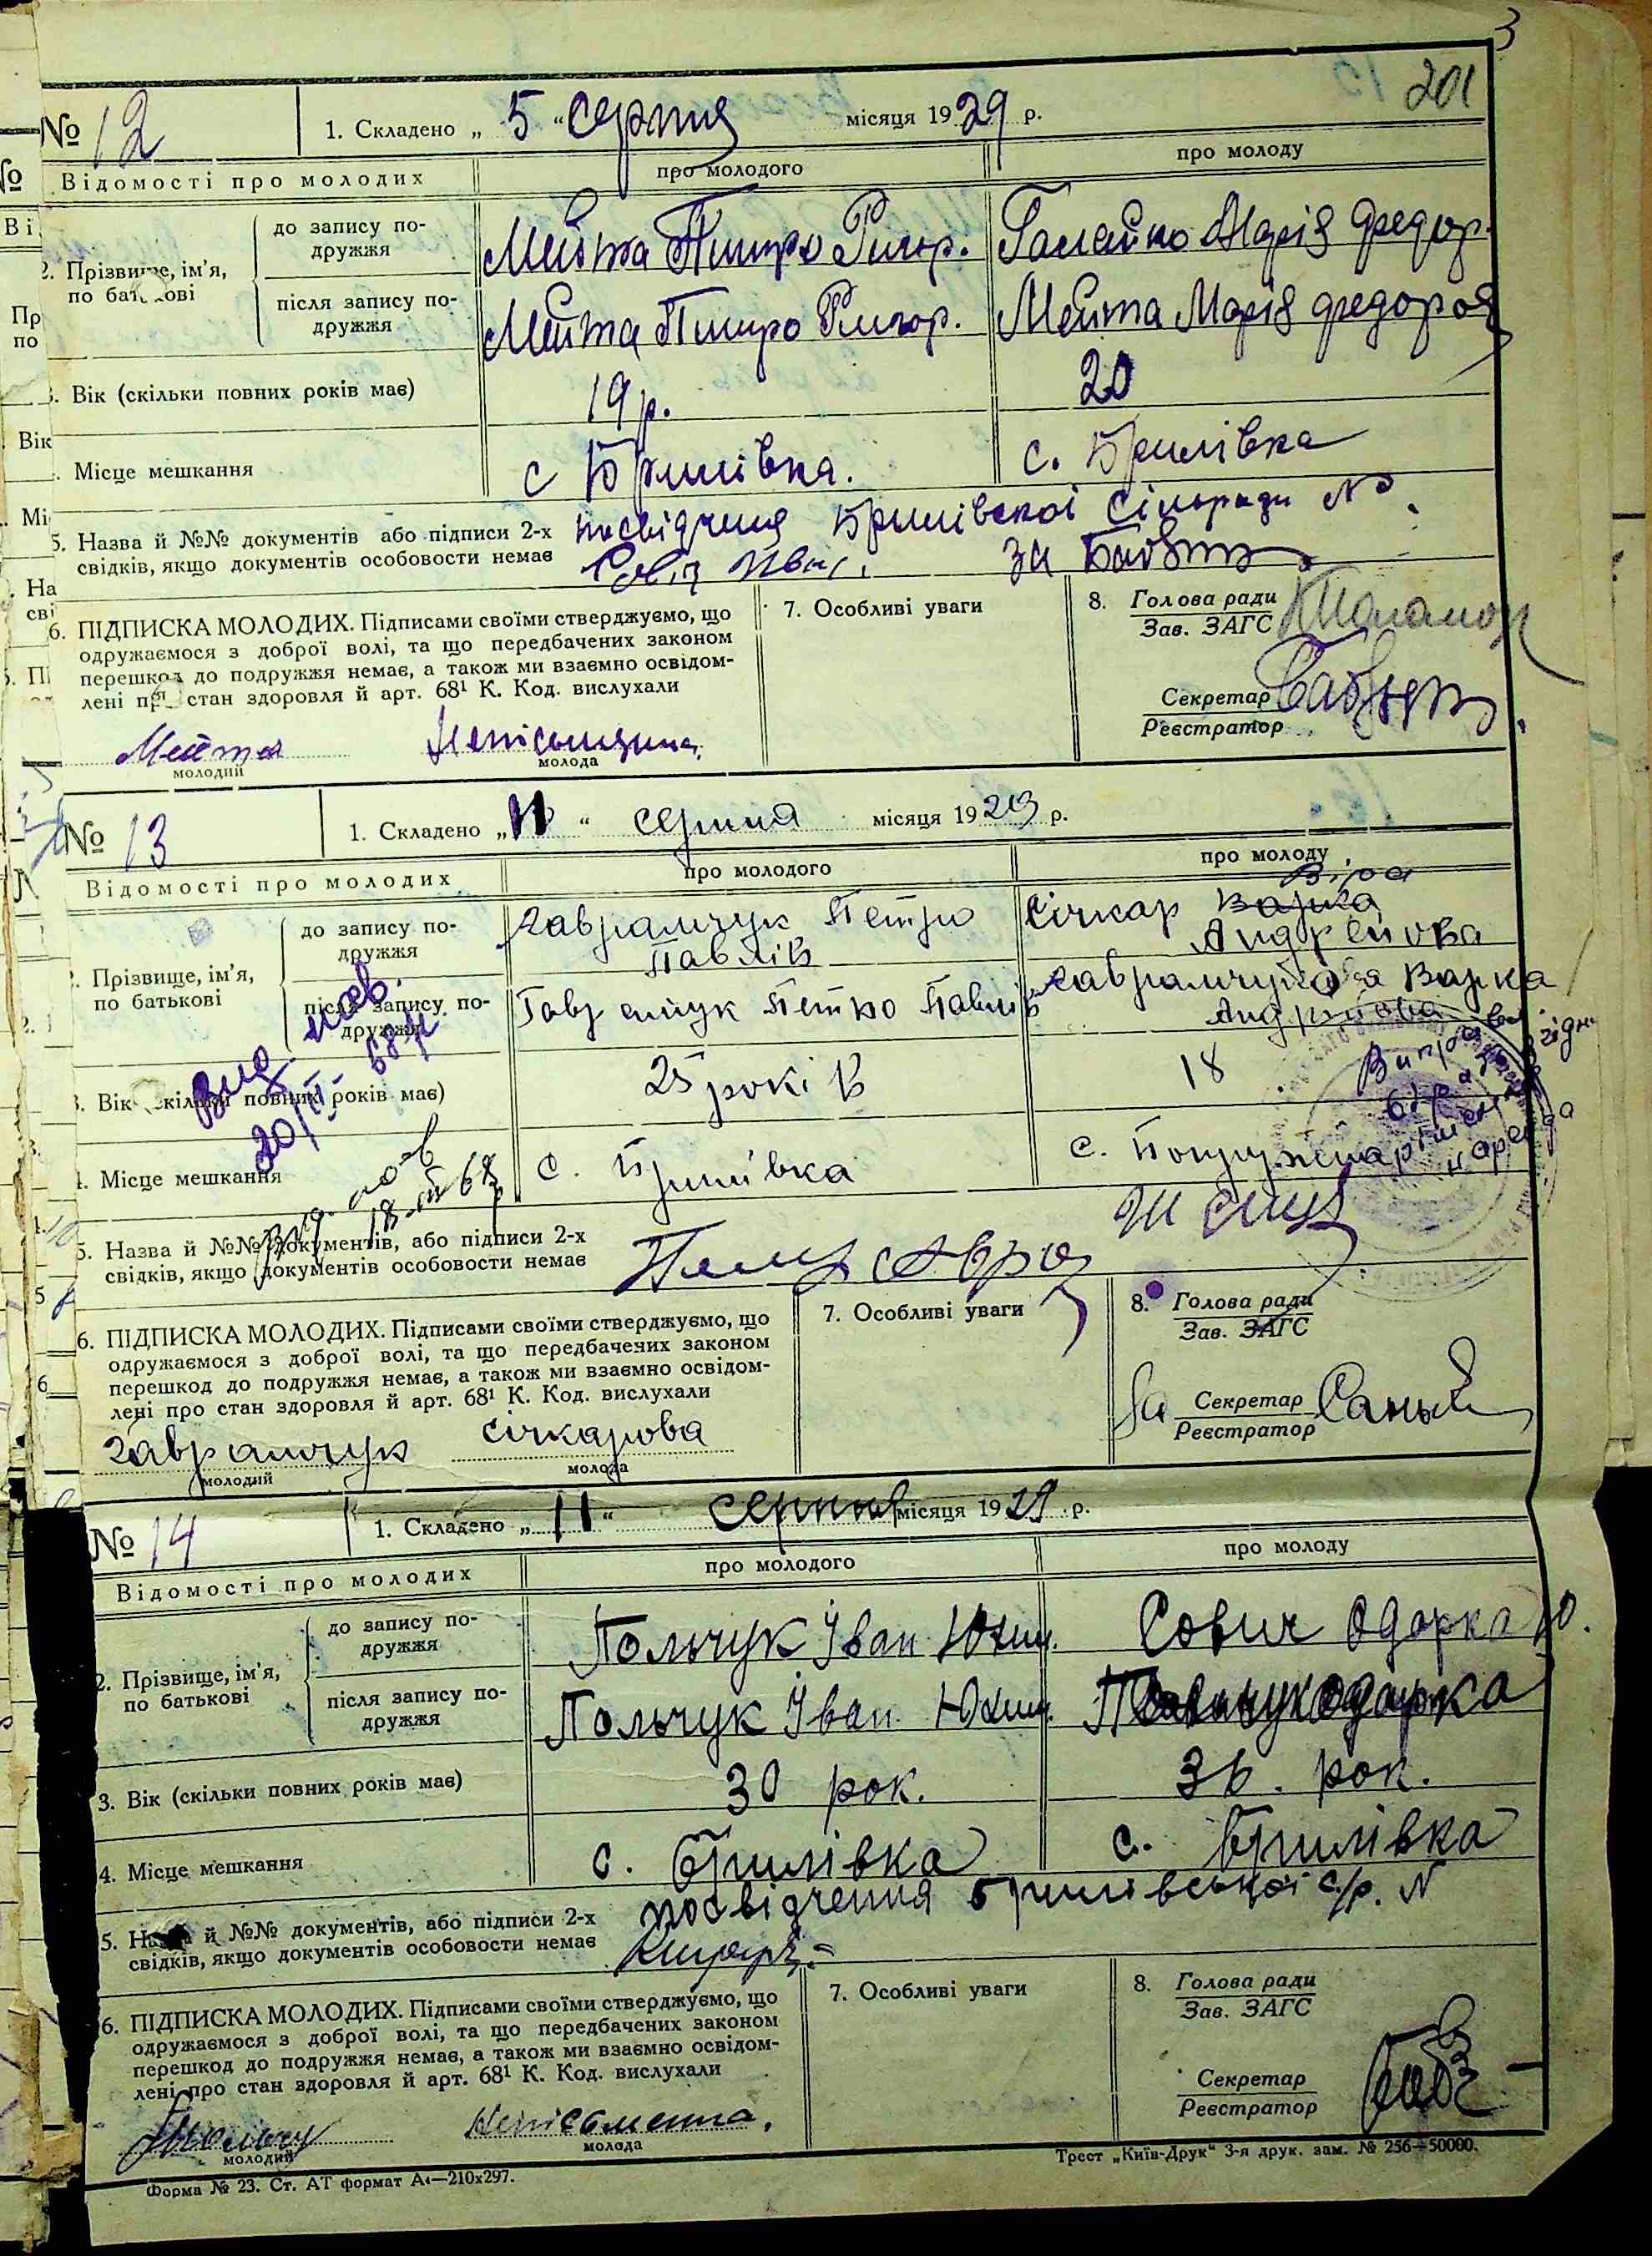 3
201
№ 12 1. Складено „ 5 “ серпня місяця 1929 р.
Відомості про молодих про молодого про молоду
2. Прізвище, ім’я, по батькові
до запису по-дружжя Мейта Римор. Марія Федор.
після запису по-дружжя Мейта Мейта Марія Федоров
3. Вік (скільки повних років має) 19 р. 20
Місце мешкання с Брилівка. с. Брилівка
5. Назва й №№ документів або підписи 2-х посвідченя Брилівської Сільради №
свідків, якщо документів особовости немає за
6. ПІДПИСКА МОЛОДИХ. Підписами своїми стверджуємо, що
одружаємося з доброї волі, та що передбачених законом
перешкод до подружжя немає, а також ми взаємно освідом-
лені про стан здоровля й арт. 68¹ К. Код. вислухали
7. Особливі уваги
8. Голова ради
Зав. ЗАГС
Секретар
Реєстратор
Мейта
молодий молода
№ 13 1. Складено „ 11 “ серпня місяця 1929 р.
Відомості про молодих про молодого про молоду
Віра
2. Прізвище, ім’я, по батькові
до запису по-дружжя Гаврамчук Петро Павлів Січкар Варка Андрейова
після запису по-дружжя Гаврамчук Петро Павлів Варка
3. Вік (скільки повних років має) 25 років 18
4. Місце мешкання с. Брилівка с.
5. Назва й №№ документів, або підписи 2-х
свідків, якщо документів особовости немає
6. ПІДПИСКА МОЛОДИХ. Підписами своїми стверджуємо, що
одружаємося з доброї волі, та що передбачених законом
перешкод до подружжя немає, а також ми взаємно освідом-
лені про стан здоровля й арт. 68¹ К. Код. вислухали
7. Особливі уваги
8. Голова ради
Зав. ЗАГС
За Секретар
Реєстратор
Гаврамчук Січкарова
молодий молода
№ 14 1. Складено „ 11 “ серпня місяця 1929 р.
Відомості про молодих про молодого про молоду
2. Прізвище, ім’я, по батькові
до запису по-дружжя Польчук Іван Юхим. Сович Одарка Ю.
після запису по-дружжя Польчук Іван Юхим. Одарка
3. Вік (скільки повних років має) 30 рок. 36. рок.
4. Місце мешкання с. Брилівка с. Брилівка
5. Назва й №№ документів, або підписи 2-х посвідчення Брилівської с/р. N
свідків, якщо документів особовости немає
6. ПІДПИСКА МОЛОДИХ. Підписами своїми стверджуємо, що
одружаємося з доброї волі, та що передбачених законом
перешкод до подружжя немає, а також ми взаємно освідом-
лені про стан здоровля й арт. 68¹ К. Код. вислухали
7. Особливі уваги
8. Голова ради
Зав. ЗАГС
Секретар
Реєстратор
Неписьменна.
молодий молода
Форма № 23. Ст. АТ формат А4—210х297.
Трест „Київ-Друк“ 3-я друк. зам. № 256—50000.